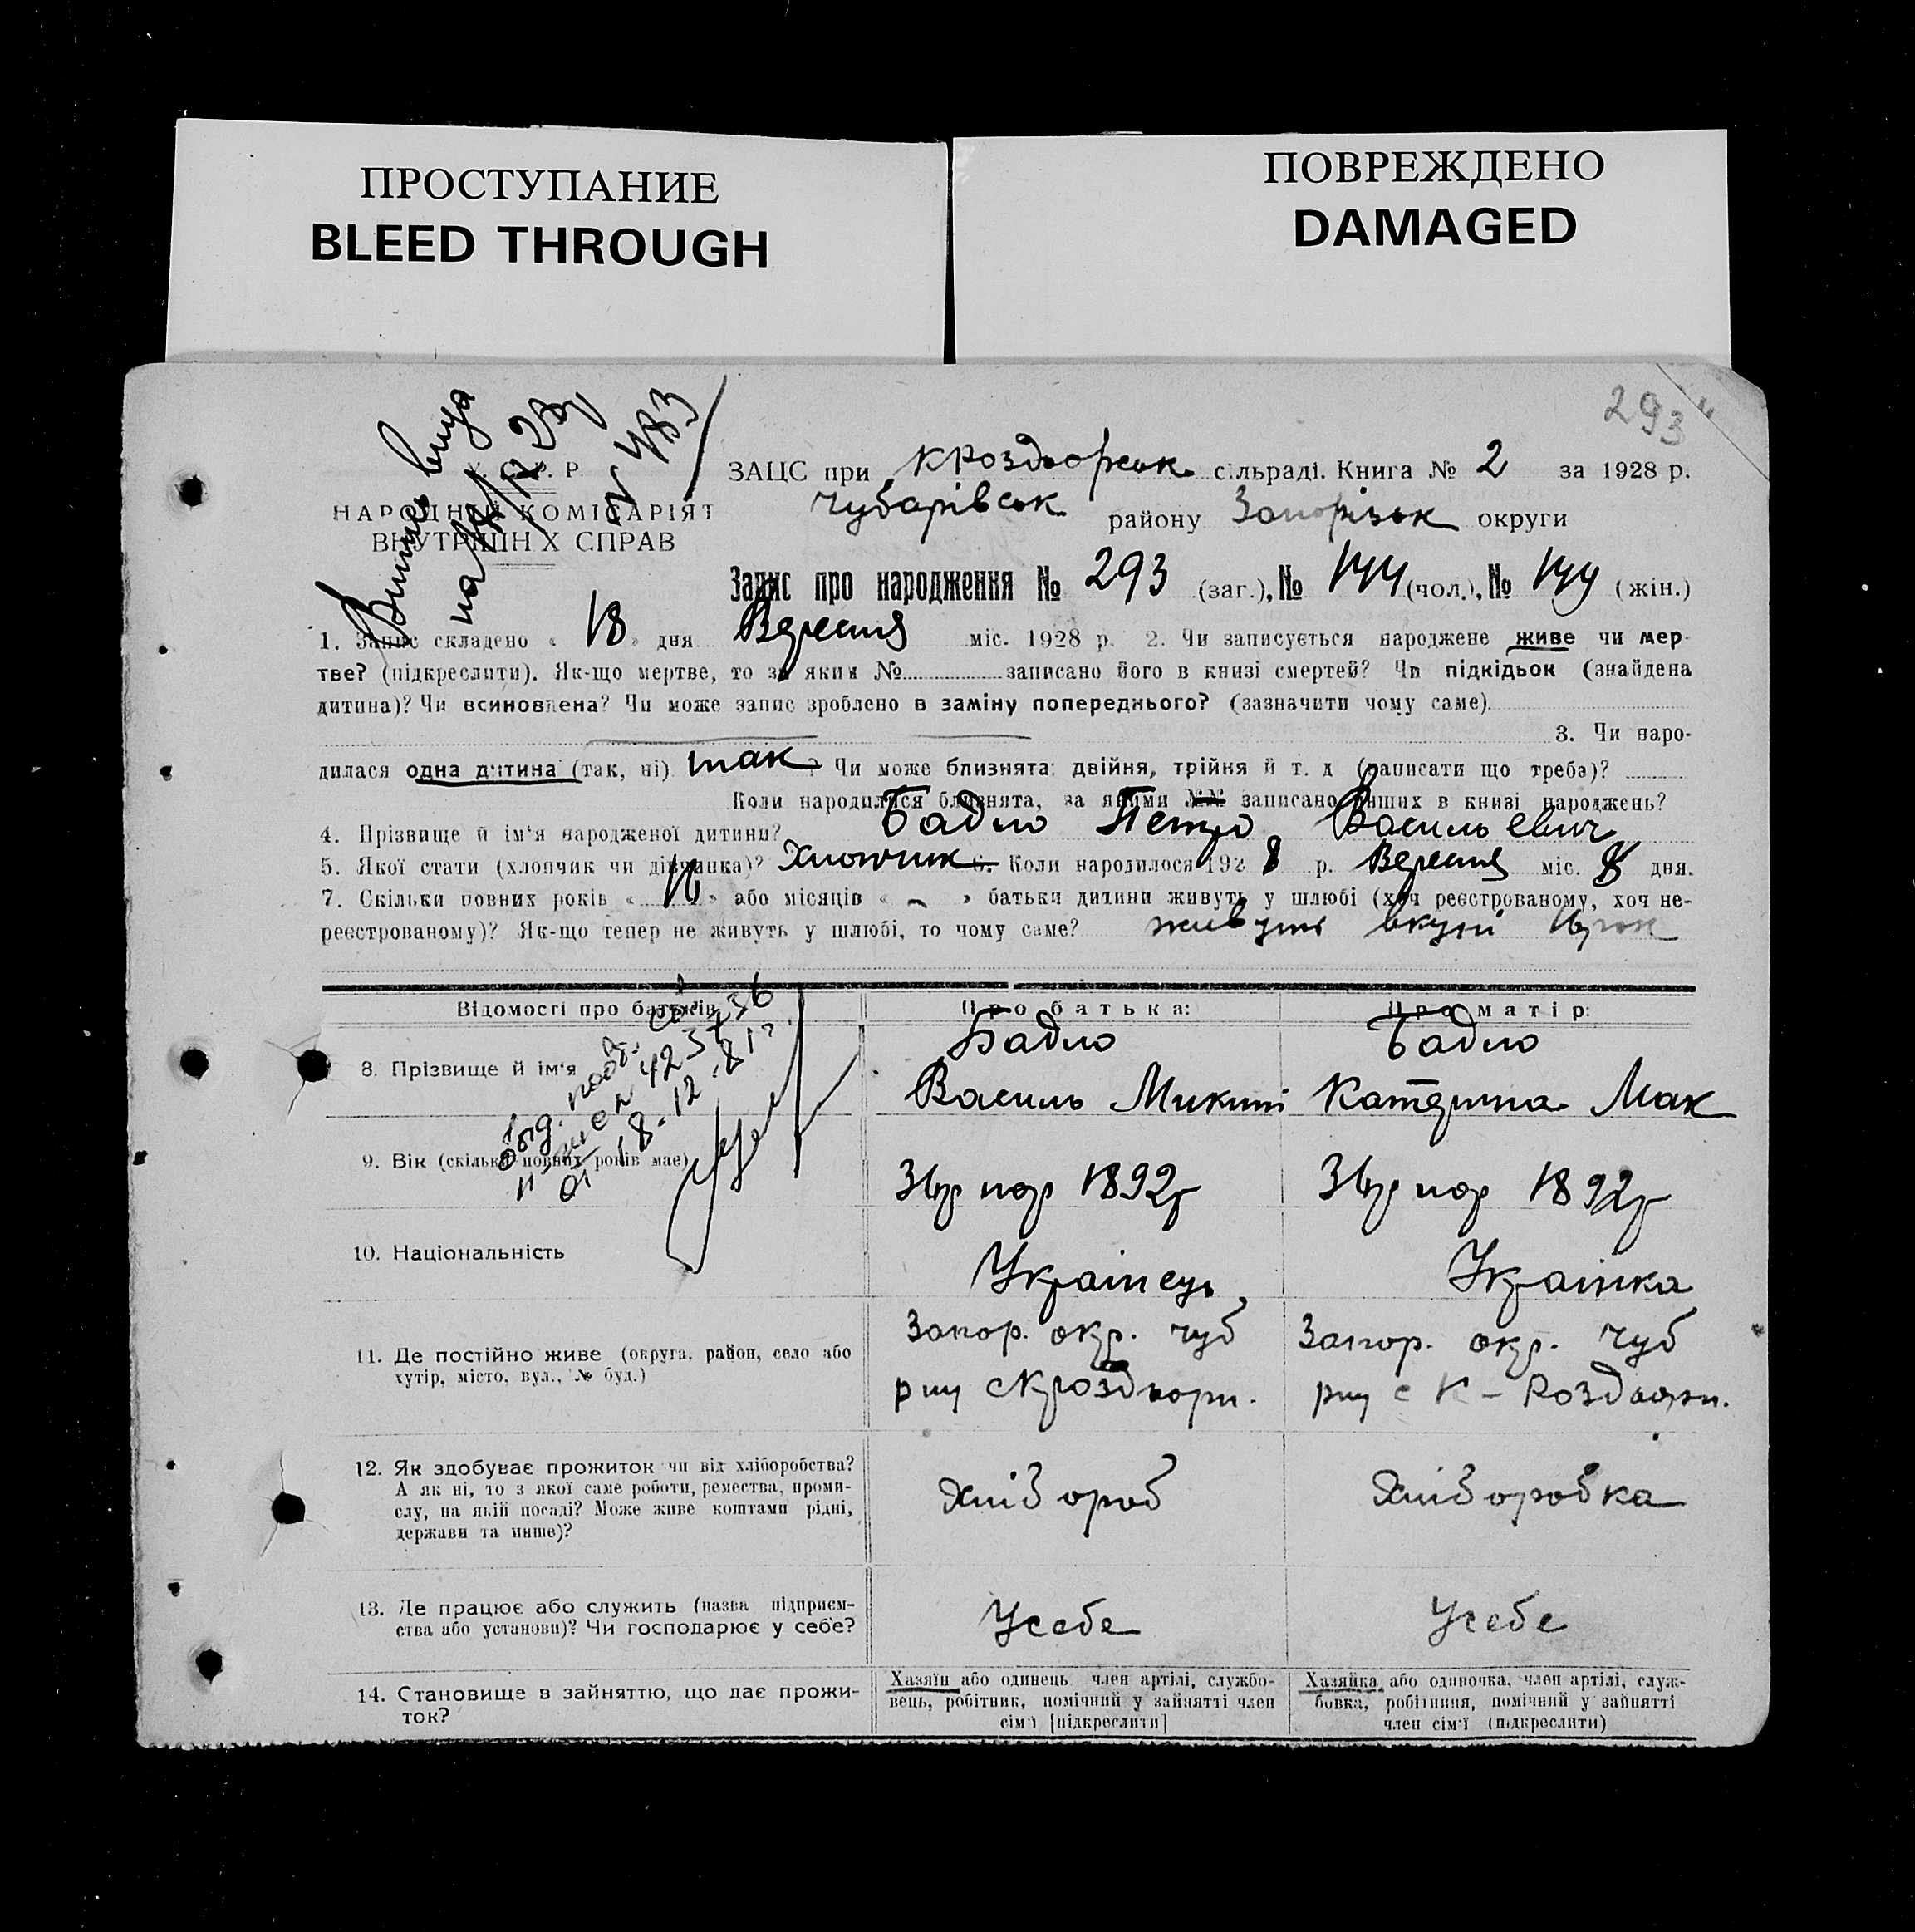 ПРОСТУПАНИЕ
BLEED THROUGH
ПОВРЕЖДЕНО
DAMAGED
293
Випись вида
N 483
У. С. Р. Р.
НАРОДНИЙ КОМІСАРІЯТ
ВНУТРІШН Х СПРАВ
ЗАЦС при КРоздорськ сільраді. Книга № 2 за 1928 р.
Чубарівськ району Запорізьк округи
Запис про народження № 293 (заг.), № 144 (чол.), № 149 (жін.)
1. Запис складено « 18 » дня Вересня міс. 1928 р. 2. Чи записується народжене живе чи мер-
тве? (підкреслити). Як-що мертве, то за яким № записано його в книзі смертей? Чи підкідьок (знайдена
дитина)? Чи всиновлена? Чи може запис зроблено в заміну попереднього? (зазначити чому саме)
3. Чи наро-
дилася одна дитина (так, ні) так? Чи може близнята: двійня, трійня й т. д (написати що треба)?
Коли народилися близнята, за якими №№ записано інших в книзі народжень?
4. Прізвище й ім'я народженої дитини? Бадло Петро Васильевич
5. Якої стати (хлопчик чи дівчинка)? Хлопчик 6. Коли народилося 1928 р. Вересня міс. 8 дня.
7. Скільки повних років « » або місяців « – » батьки дитини живуть у шлюбі (хоч реєстрованому, хоч не-
реєстрованому)? Як-що тепер не живуть у шлюбі, то чому саме? живуть вкупі
Відомості про батьків
Про батька:
Про матір:
8. Прізвище й ім'я
Бадло
Василь Микит
Бадло
Катерина Мак
18-12-81г.
9. Вік (скільки повних років має)
36р нар 1892р
36р нар 1892р
10. Національність
Українець
Українка
11. Де постійно живе (округа, район, село або
хутір, місто, вул., № буд.)
Запор. окр. Чуб
рну с Кроздвори.
Запор. окр. Чуб
рну с К-Роздвори.
12. Як здобуває прожиток чи від хліборобства?
А як ні, то з якої саме роботи, ремества, проми-
слу, на якій посаді? Може живе коштами рідні,
держави та инше)?
Хлібороб
Хліборобка
13. Де працює або служить (назва підприєм-
ства або установи)? Чи господарює у себе?
Усебе
Усебе
14. Становище в зайняттю, що дає прожи-
ток?
Хазяїн або одинець член артілі, службо-
вець, робітник, помічний у зайнятті член
сім'ї [підкреслити]
Хазяйка або одиночка, член артілі, служ-
бовка, робітниця, помічний у зайнятті
член сім'ї (підкреслити)